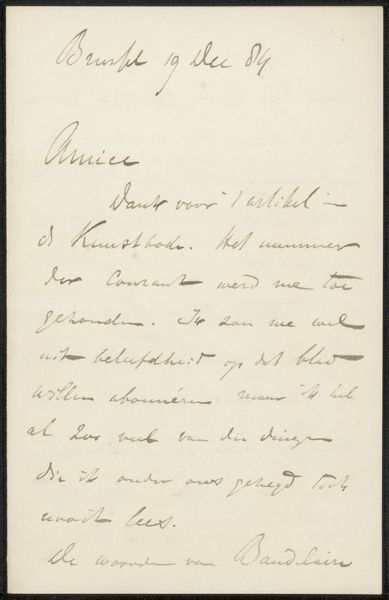 Brussel 19 Dec 84
Amice
Dank voor 't artikel in
de Kunstbode. Het nummer
der Courant werd me toe
gezonden. Ik zou me wel
uit beleefdheid op dat blad
willen abonnéren maar ik heb
al zoo veel van die dingen
die ik onder ons gezegd toch
nooit lees.
De woorden van Baudelaire